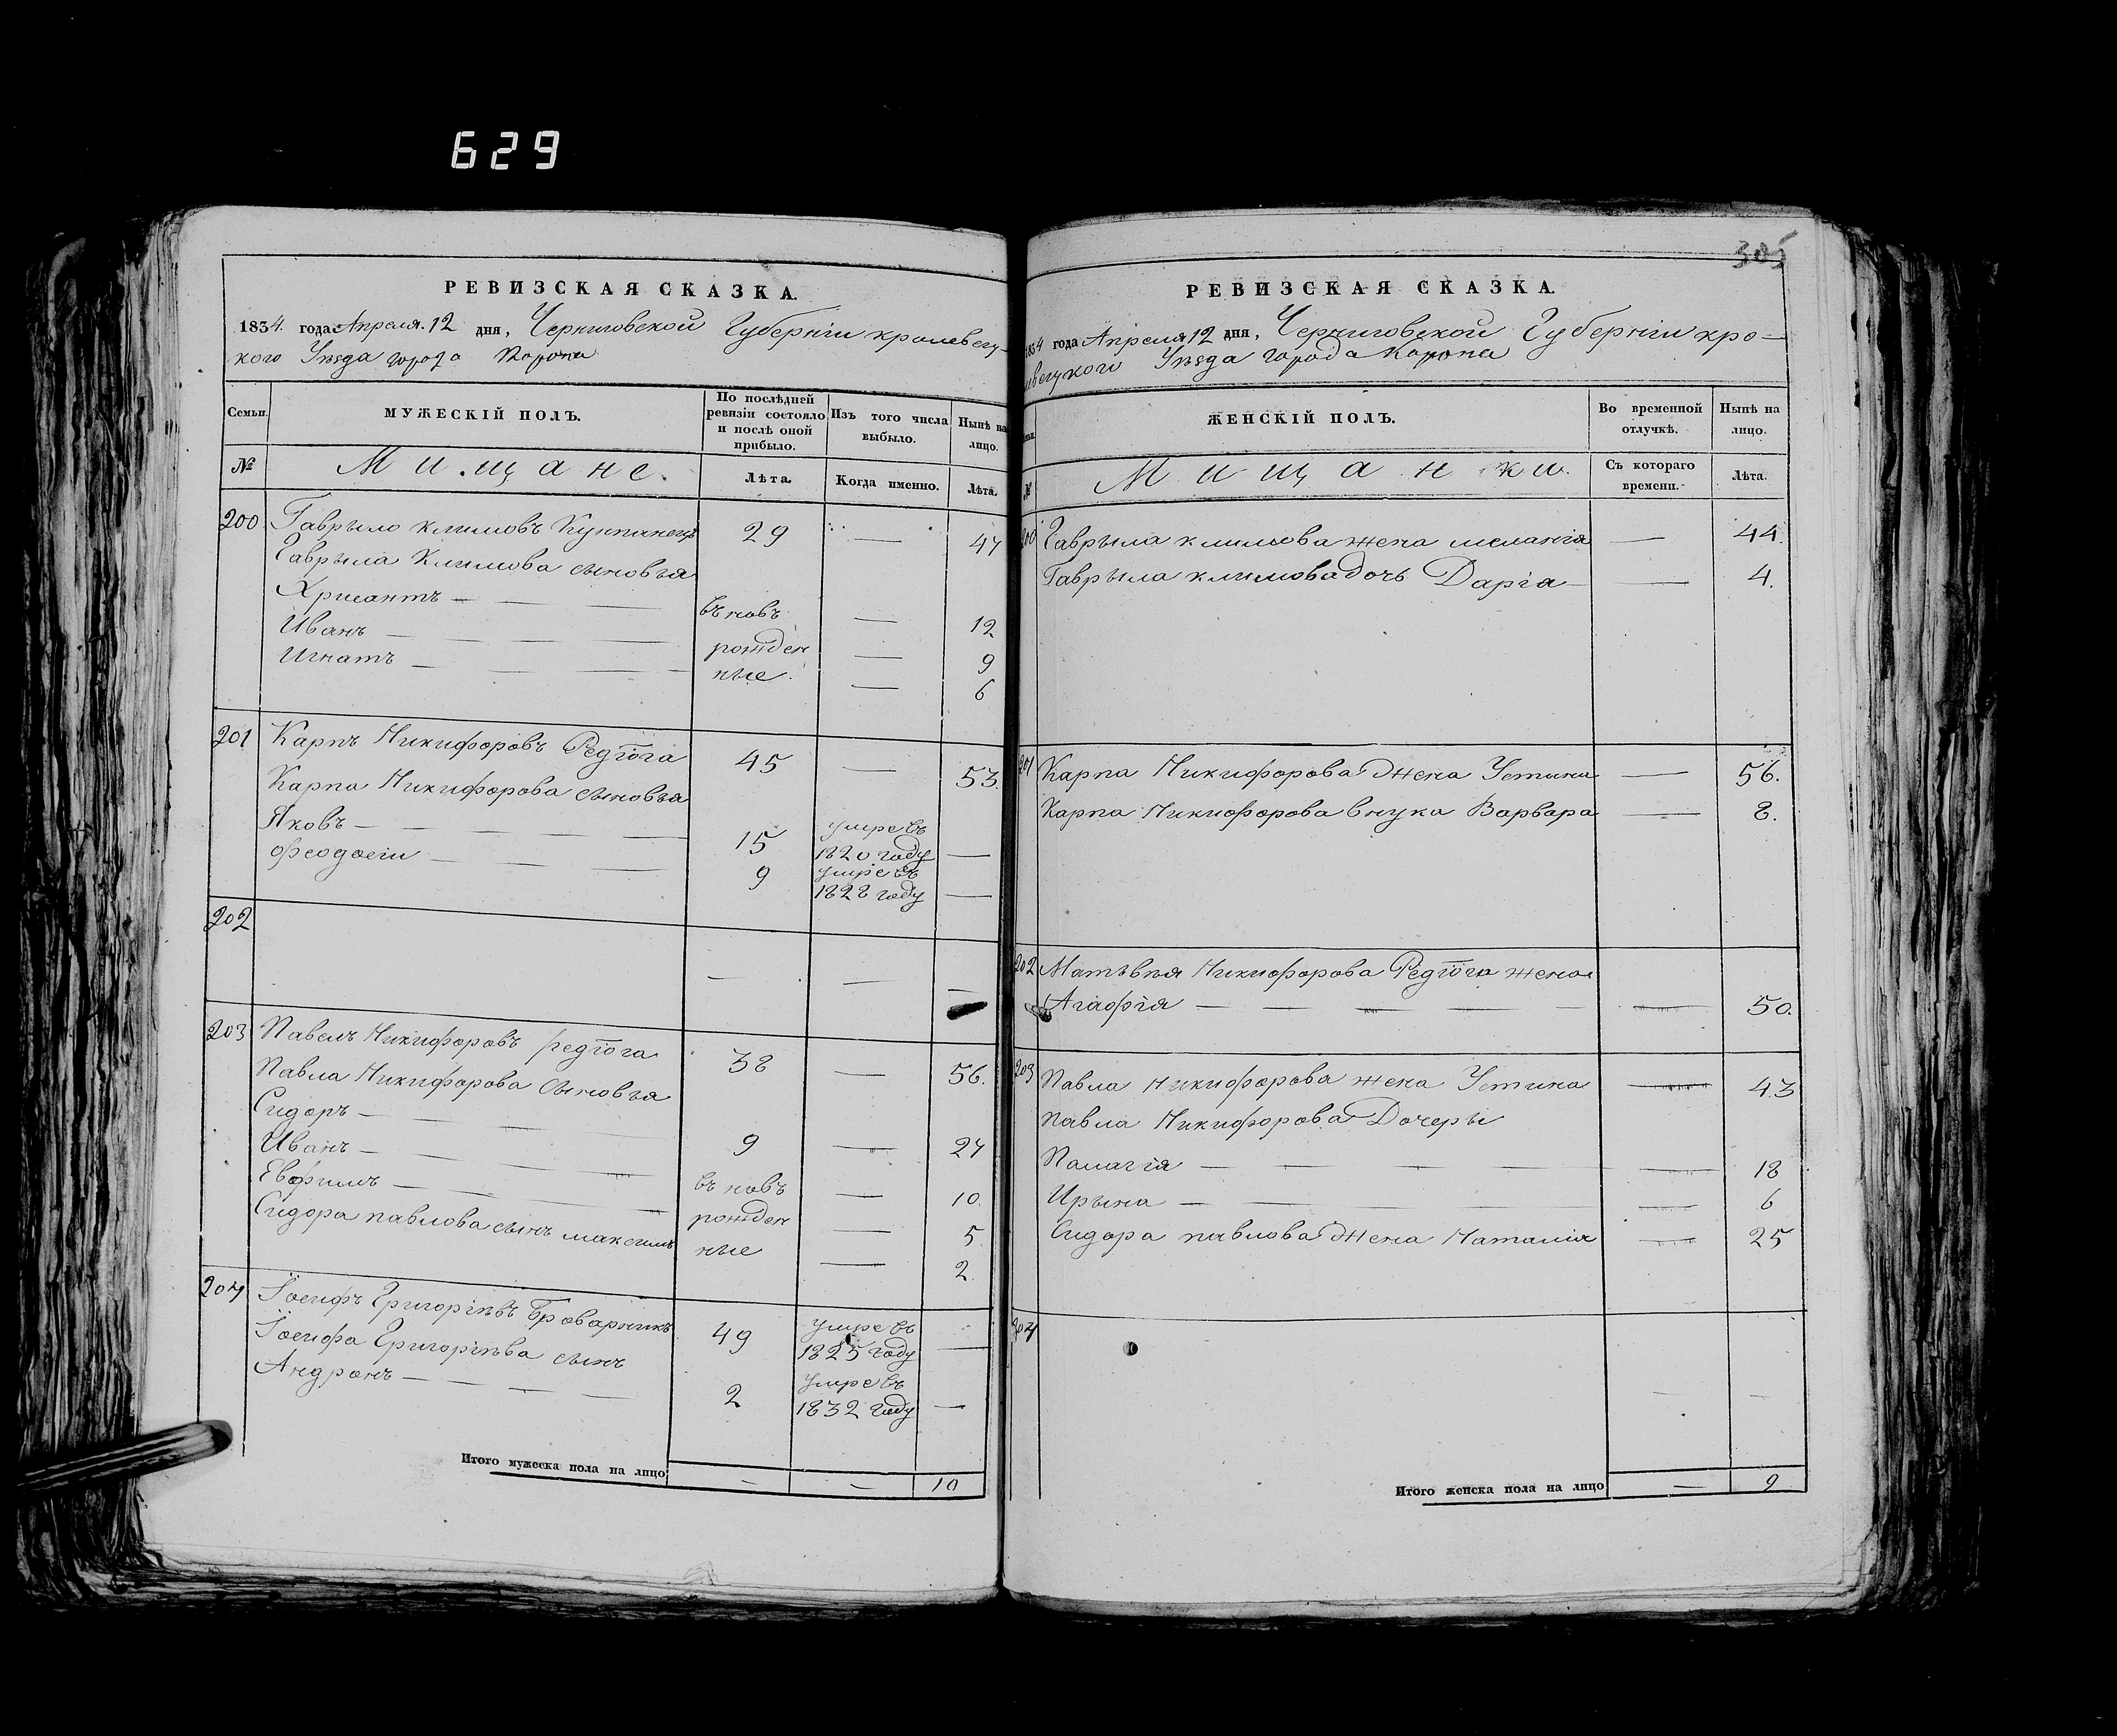 629
РЕВИЗСКАЯ СКАЗКА.
1834. года Апреля. 12 дня, Черниговской Губерніи кролевец-
кого Уѣзда города Коропа
Семьи.
МУЖЕСКІЙ ПОЛЪ.
По послѣдней ревизіи состояло и послѣ оной прибыло.
Изъ того числа выбыло.
Нынѣ на лицо.
№
Мищане.
Лѣта.
Когда именно.
Лѣта.
200 Гаврыло Климовъ 29 — 47
Гаврыла Климова сыновья
Хрисантъ — въ новъ — 12
Иванъ — рожден — 9
Игнатъ — ные. — 6
201 Карпъ Никифоровъ Редюга 45 — 53.
Карпа Никифорова сыновья
Яковъ — 15 умре въ 1820 году —
Феодосій — 9 умре въ 1828 году —
202 — — —
203 Павелъ Никифоровъ редюга 38 — 56.
Павла Никифорова сыновья
Сидоръ — 9 — 27
Иванъ — въ новъ — 10
Евфимъ — рожден — 5.
Сидора павлова сынъ максимъ ные — 2.
204 Іосифъ Григоріевъ Броварникъ 49 умре въ 1825 году —
Іосифа Григоріева сынъ
Андронъ — 2 умре въ 1832 году —
Итого мужеска пола на лицо — — 10
305
РЕВИЗСКАЯ СКАЗКА.
1834 года Апреля 12 дня, Черниговской Губерніи кро-
левецкого Уѣзда города Коропа
ЖЕНСКІЙ ПОЛЪ.
Во временной отлучкѣ.
Нынѣ на лицо.
№
Мищанки.
Съ котораго времени.
Лѣта.
200 Гаврыла климова жена меланія — 44.
Гаврыла климова дочь Дарія — 4.
201 Карпа Никифорова жена Устина — 56.
Карпа Никифорова внука Варвара — 8.
202 Матвѣя Никифорова Редюга жена
Агафія — 50.
203 Павла Никифорова жена Устина — 43
Павла Никифорова Дочеры
Палагія — 18
Ирына — 6
Сидора павлова жена Наталія — 25
204 — —
Итого женска пола на лицо — 9